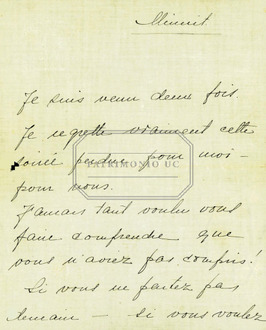 Minuit
Je suis venu deux fois
Je regrette vraiment cette
soirée perdue pour moi -
PATRIMONIO UC
pour nous.
J'amais tant voulu vous
faire comprendre que
vous n'avez pas compris!
Si vous ne partez pas
demain — si vous voulez